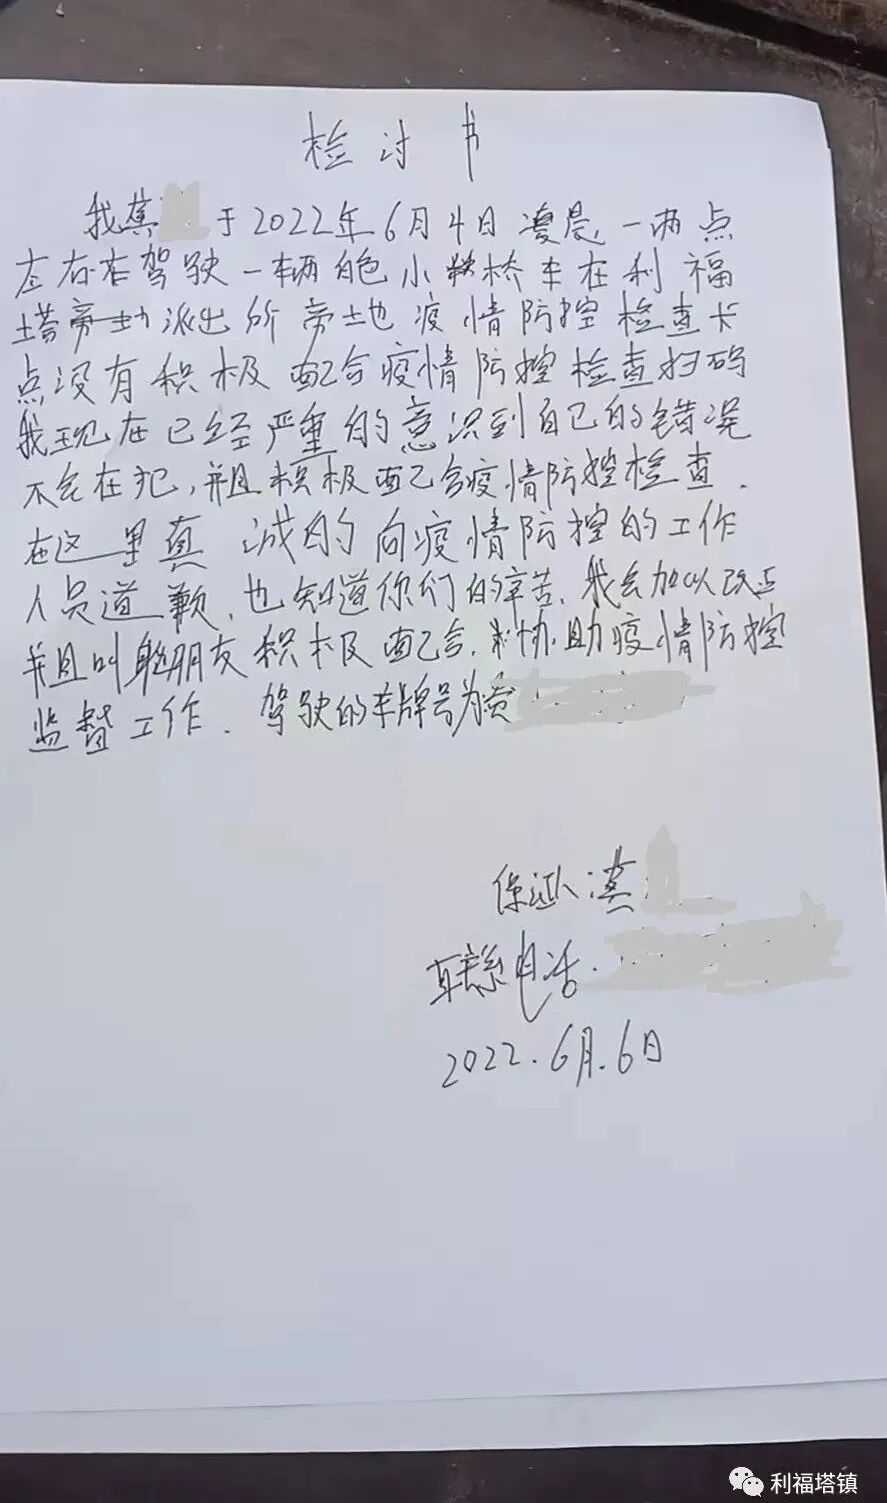 检讨书
我蕉 于2022年6月4日凌晨一两点
左右右驾驶一辆白色小轿车在利福
塔 派出所 旁地疫情防控检查卡
点没有积极配合疫情防控检查扫码
我现在已经严重的意识到自己的错误
不会在犯,并且积极配合疫情防控检查.
在这里真诚的向疫情防控的工作
人员道歉,也知道你们的辛苦.我会加以改正
并且叫 朋友积极配合.并协助疫情防控
监督工作.驾驶的车牌号为贵
保证人:
联系电话.
2022.6月.6日
利福塔镇